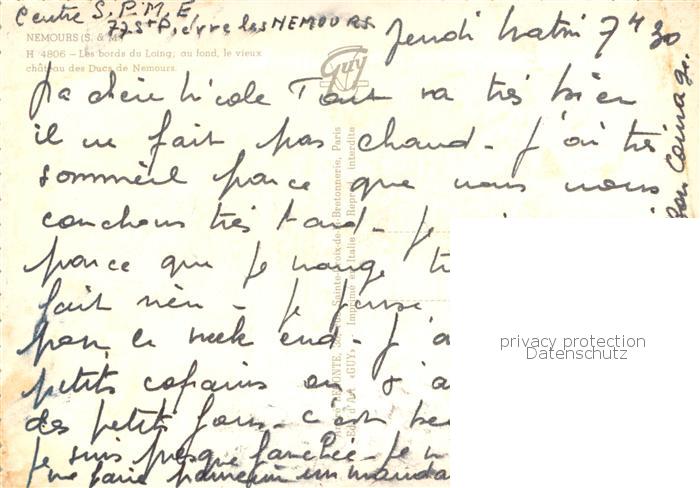 Centre S.P.M.E
77 St Pierre les NEMOURS
Jeudi matin 7H30
NEMOURS (S. & M.)
H 4806 — Les bords du Loing; au fond, le vieux
château des Ducs de Nemours.
Guy
Ma chère Nicole Tout va très bien
il ne fait pas chaud - J'ai très
sommeil parce que nous nous
couchons très tard - Je
parce que je mange
fait rien - Je pense
pour ce week end - J'a
petits copains on s'a
des petits fours - c'est
Je suis presque fauchée - Je
me faire parvenir un manda
Sainte-Croix-de-la-Bretonnerie, Paris
Edit. d'Art «GUY» - Imprimé en Italie - Reprod. interdite
privacy protection
Datenschutz